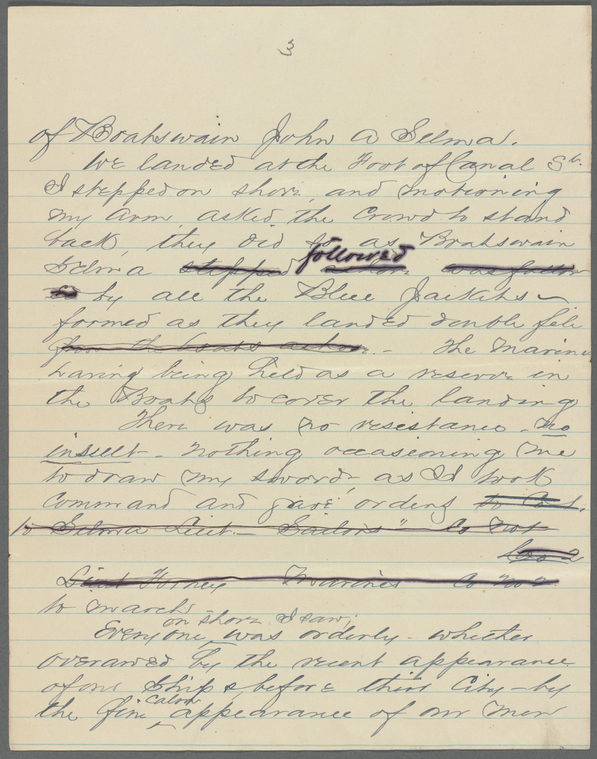 3
of Boatswain John A Selma.
We landed at the Foot of Canal St.
I stepped on shore, and motioning
my arm asked the Crowd to stand
back, they did so as Boatswain
Selma stepped followed was follow
ed by all the Blue Jackets –
formed as they landed double file
from the boats – The Marines
having being held as a reserve in
the Boats to cover the landing
There was no resistance – no
insult – nothing occasioning me
to draw my sword, as I took
Command and gave orders to Co 1.
to Selma Lieut – Sailors " Co No 1
Co 2
Lieut Forney Marines Co No 2
to march –
on shore I saw,
Every one was orderly – whether
overawed by the recent appearance
of our Ships before their City – by
the fine calm appearance of our Men